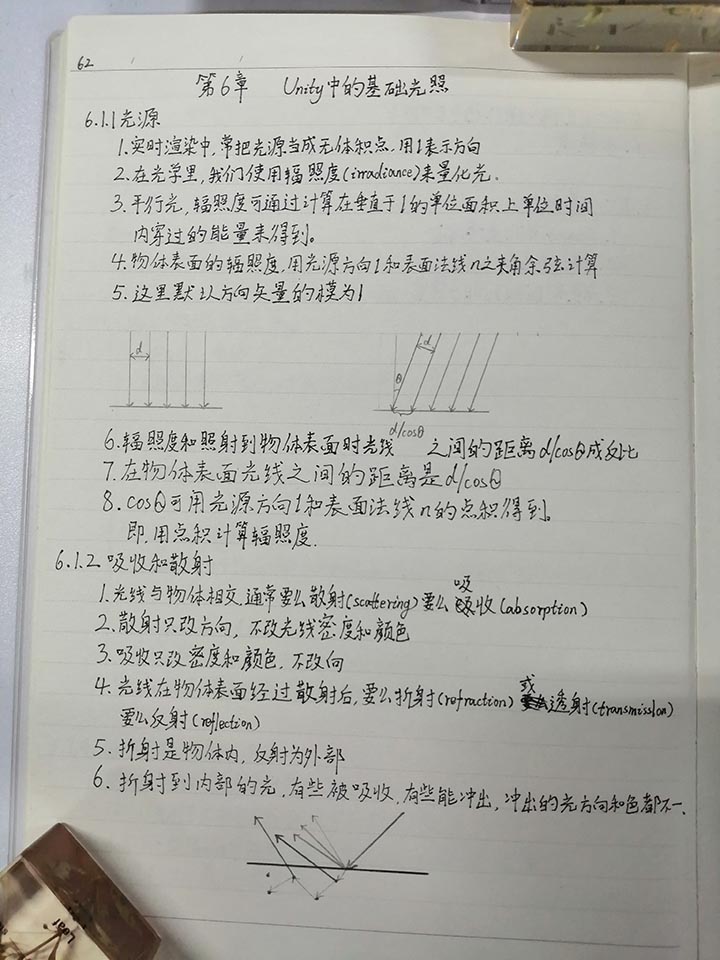 62
第6章 Unity中的基础光照
6.1.1光源
1.实时渲染中,常把光源当成无体积点,用l表示方向
2.在光学里,我们使用辐照度(irradiance)来量化光.
3.平行光,辐照度可通过计算在垂直于l的单位面积上单位时间
内穿过的能量来得到。
4.物体表面的辐照度,用光源方向l和表面法线n之夹角余弦计算
5.这里默认方向矢量的模为1
d
d
θ
d/cosθ
6.辐照度和照射到物体表面时光线 之间的距离d/cosθ成反比
7.在物体表面光线之间的距离是d/cosθ
8.cosθ可用光源方向l和表面法线n的点积得到。
即.用点积计算辐照度.
6.1.2 吸收和散射
1.光线与物体相交,通常要么散射(scattering)要么吸收(absorption)
2.散射只改方向,不改光线密度和颜色
3.吸收只改密度和颜色,不改向
4.光线在物体表面经过散射后,要么折射(refraction)或透射(transmission)
要么反射(reflection)
5.折射是物体内,反射为外部
6.折射到内部的光,有些被吸收,有些能冲出,冲出的光方向和色都不一.